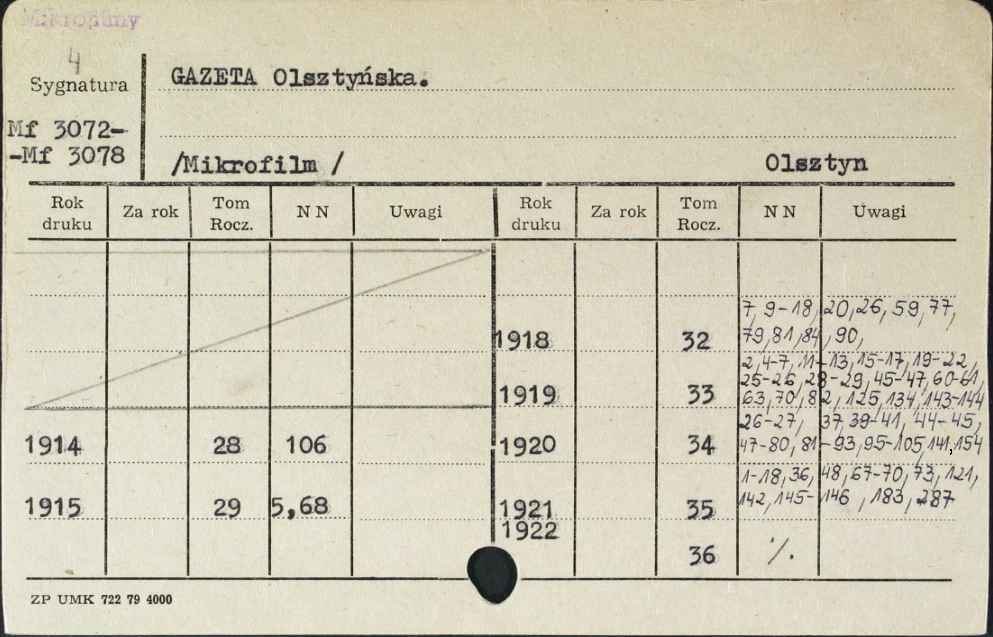 Mikrofilmy
4
Sygnatura
GAZETA Olsztyńska.
Mf 3072-
-Mf 3078
/Mikrofilm / Olsztyn
Rok druku Za rok Tom Rocz. NN Uwagi Rok druku Za rok Tom Rocz. NN Uwagi
7, 9-18, 20, 26, 59, 77,
1918 32 79, 81, 84, 90,
2, 4-7, 11-13, 15-17, 19-22,
25-26, 28-29, 45-47, 60-61,
1919 33 63, 70, 82, 125, 134, 143-144
26-27, 37, 39-41, 44-45,
1914 28 106 1920 34 47-80, 81-93, 95-105, 141, 154
1-18, 36, 48, 67-70, 73, 121,
1915 29 5,68 1921 35 142, 145-146, 183, 287
1922
36 ./.
ZP UMK 722 79 4000